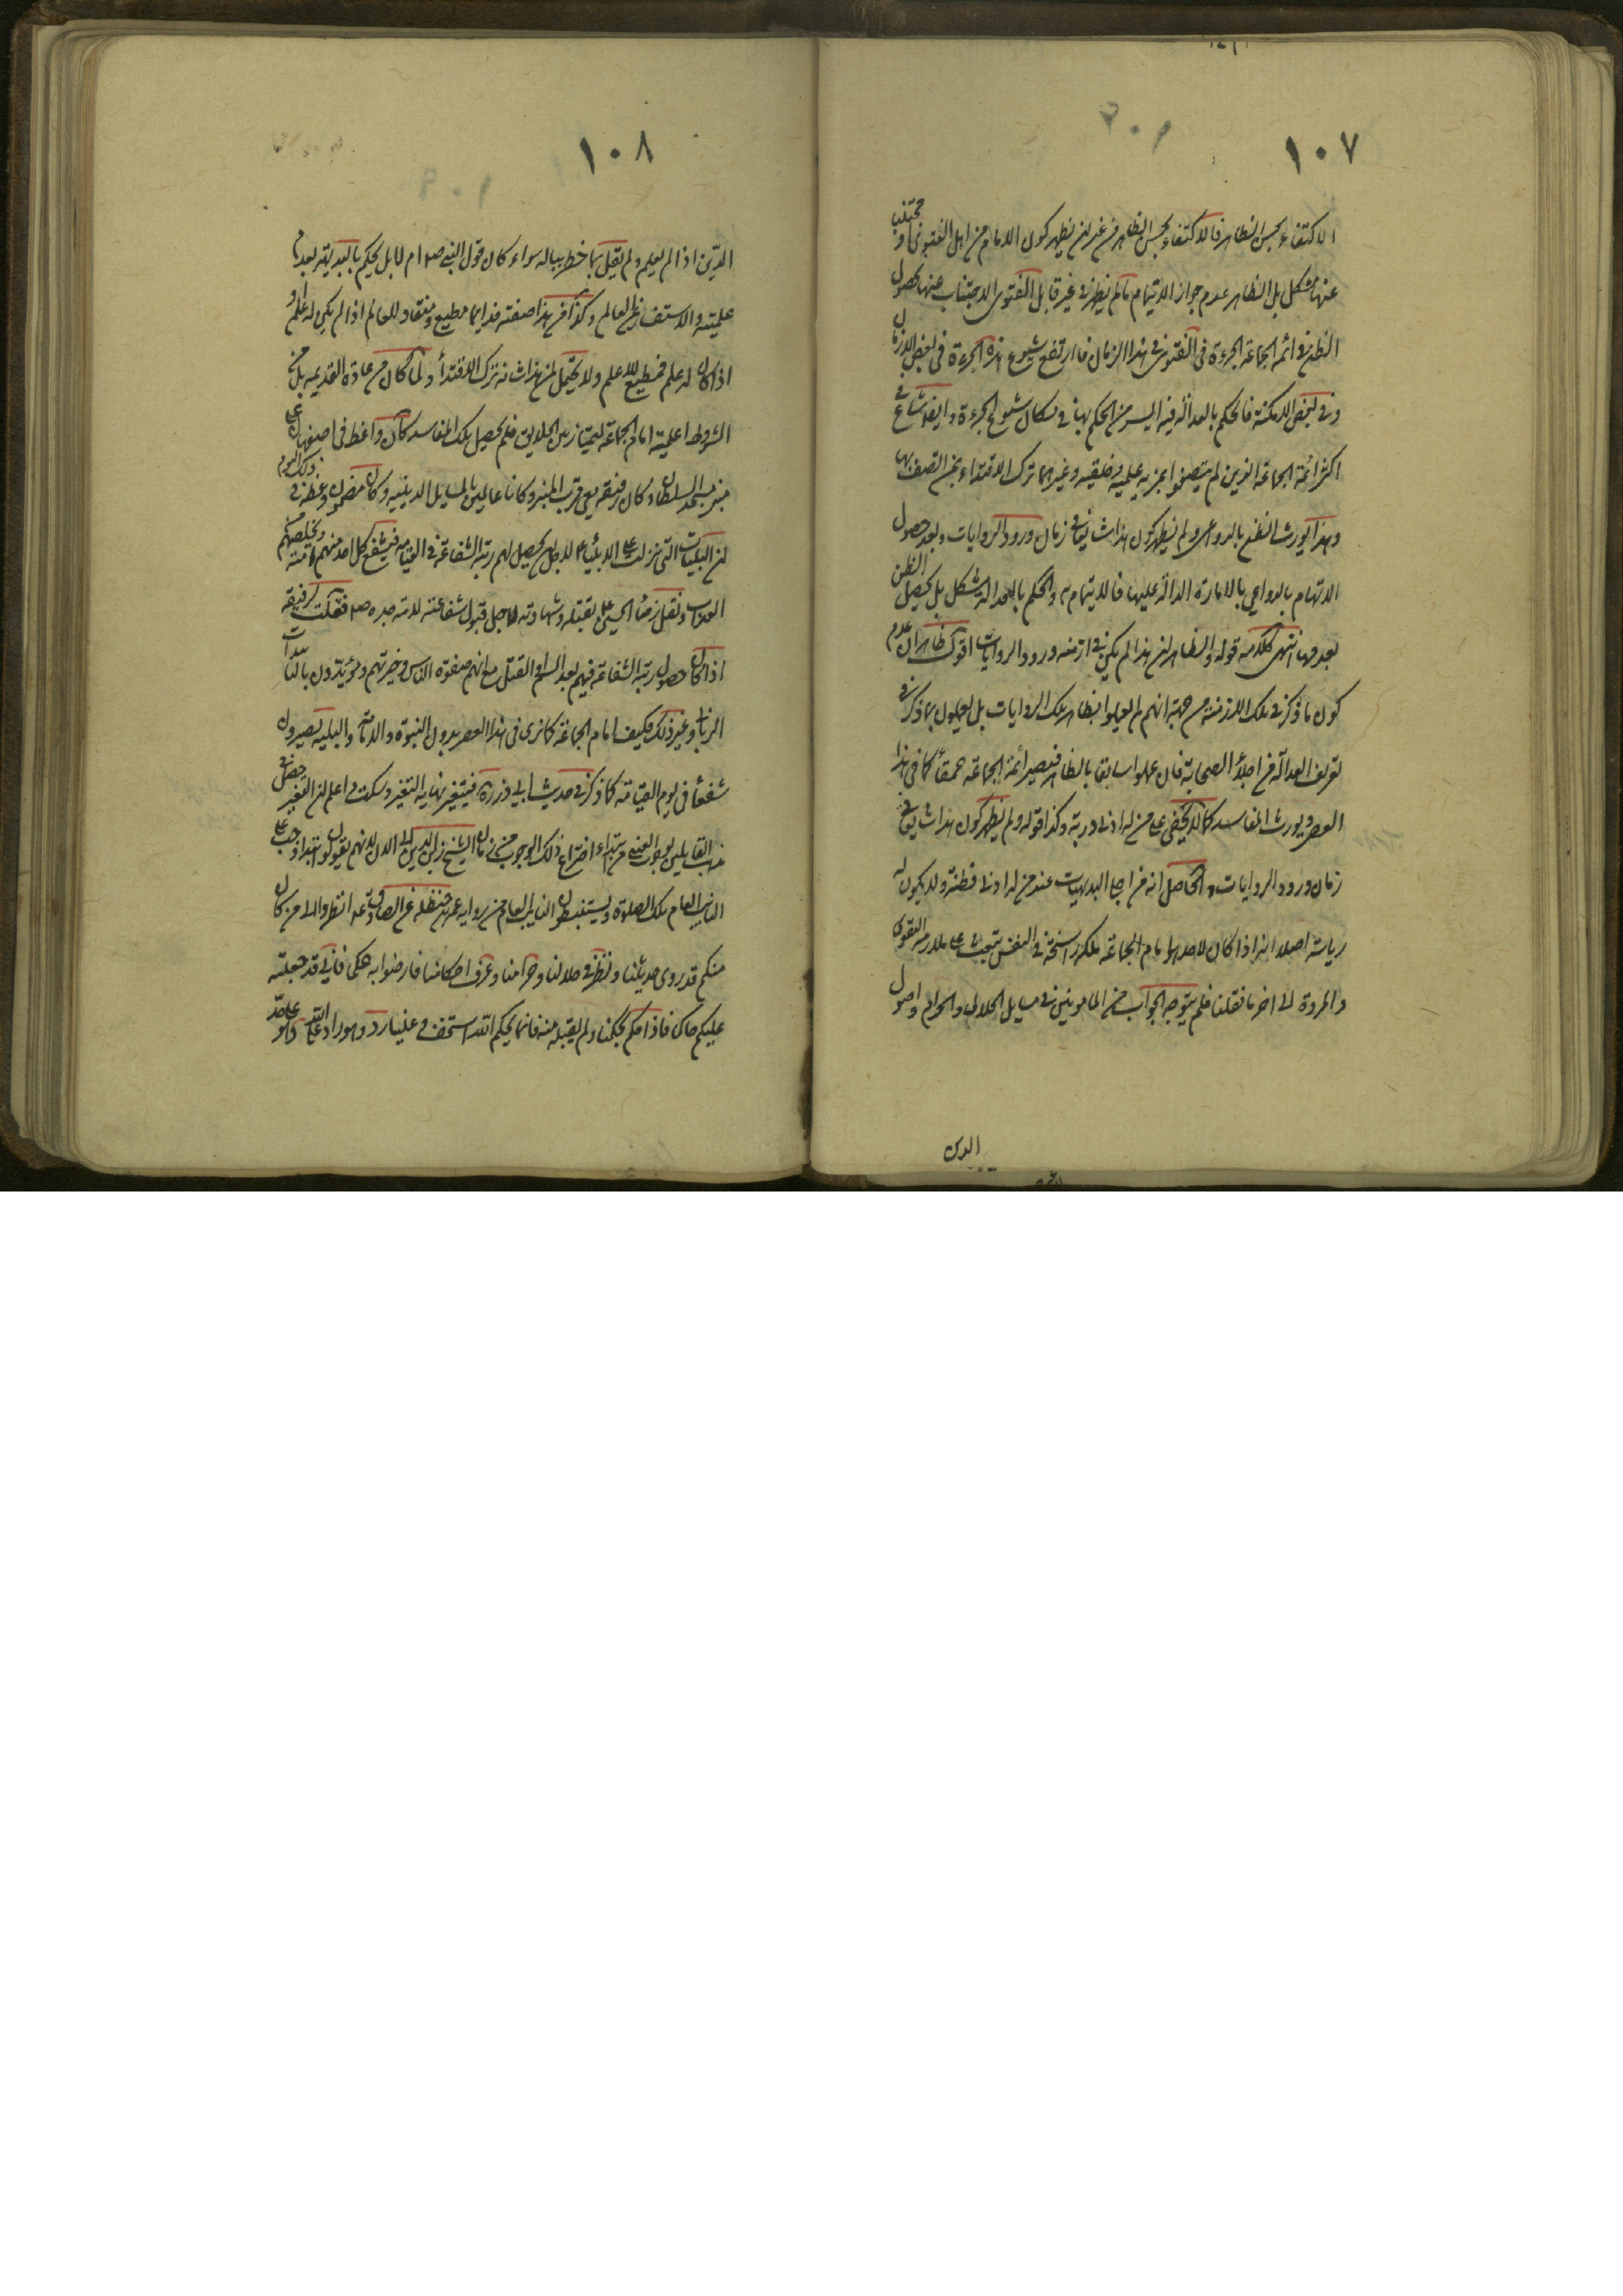 ١٠٧
الاكتفاء بحسن الظاهر فالاكتفاء بحسن الظاهر من غير ان يظهر كون الامام من اهل الفتوى او مجتنب
عنها مشكل بل الظاهر عدم جواز الايتمام مالم يظهر في غير قابل الفتوى الاجتناب عنها لحصول
الظن في ائمة الجماعة الجرءة في الفتوى في هذا الزمان فان ارتفع شيوع هذه الجرءة في بعض الازمان
وفي بعض الامكنة فالحكم بالعدالة فيه ايسر من الحكم بها في مكان شيوع الجرءة وايضا شاع في
اكثر ائمة الجماعة الذين لم يتصفوا بمزية علمية وخلقية وغيرهما ترك الاقتداء بمن اتصف بها
وهذا يورث الظن بالدواعي ولم يظهر كون هذا شايعا في زمان ورود الروايات وبعد حصول
الاتهام بالدواعي بالامارة الدالة عليها فالايتمام به والحكم بالعدالة مشكل بل يحصل الظن
بعدمها انتهى كلامه قوله والظاهر ان هذا لم يكن في ازمنة ورود الروايات اقول ظاهر ان عدم
كون ما ذكر في تلك الازمنة من جهة انهم لم يعملوا بظاهر تلك الروايات بل يعملون بما ذكر في
تعريف العدالة من اجلاء الصحابة فان عملوا سابقا بالظاهر فيصير ائمة الجماعة حمقاء كما في هذا
العصر ويورث المفاسد كما لا يخفى على من له ادنى دربة وكذا قوله ولم يظهر كون هذا شايعا في
زمان ورود الروايات والحاصل انه من اجلى البديهيات عند من له ادنى فطنة ولا يكون له
رياسة اصلا انه اذا كان لاحد امام الجماعة ملكة راسخة في النفس تبعث على ملازمة التقوى
والمروة الى اخر ما نقلنا فلم يتوجه الجواب من المامومين في مسايل الحلال والحرام واصول
الدين
١٠٨
الدين اذا لم يعلم ولم يقل بما خطر بباله سواء كان قول النبي ص ام لا بل يحكم بالبديهة بعدم
علميته والاستفسار عن العالم وكذا من هذا صفته فدايما مطيع ومنقاد للعالم اذا لم يكن له علم و
اذا كان له علم فمطيع للاعلم ولا يحتمل لمن هذا شانه ترك الاقتداء ولما كان من عادة القديمة بل من
الشروط اعلمية امام الجماعة ليمتاز من الخلايق فلم يحصل تلك المفاسد كان واعظ في اصفهان على
منبر مسجد السلطان وكان رفيقه معي قرب المنبر وكانا عالمين بالمسايل الدينية وكان مضمون وعظه في ذلك اليوم
ان البليات التي نزلت على الانبياء ع لاجل ان يحصل لهم رتبة الشفاعة في القيامة فيشفع كل احد منهم لامته ويخلصهم من
العذاب ونقل رضاء الحسين ع بقتله وشهادته لاجل قبول شفاعته لامة جده ص فقلت لرفيقه
اذا كان حصول رتبة الشفاعة فيهم بعد السلخ والقتل مع انهم صفوة الناس وخيرتهم ومؤيدون بالتاييدات
الربانية وغير ذلك فكيف امام الجماعة كما نرى في هذا العصر بدون النبوة والامامة والبلية يصيرون
شفعاء في يوم القيامة كما ذكر في حديث ابي ذر ره فيتغير نهاية التغير وسكت اعلم ان التغير حصل في
مذهب القايلين بوجوب العيني من ابتداء اختراع ذلك الوجوب من زمان الشيخ زين الدين الى الان لانهم يقولون ابتداء وجب على
النايب العام تلك الصلوة ويستنبطون النايب العام من رواية عمر بن حنظلة عن الصادق ع انظروا الى من كان
منكم قد روى حديثنا ونظر في حلالنا وحرامنا وعرف احكامنا فارضوا به حكما فاني قد جعلته
عليكم حاكما فاذا حكم بحكمنا ولم يقبله منه فانما بحكم الله استخف وعلينا رد وهو راد على الله وهو على حد